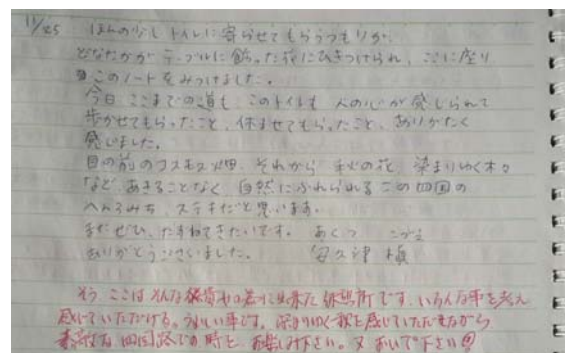 11/25 ほんの少しトイレに寄らせてもらうつもりが、
どなたかがテーブルに飾った花にひきつけられ、ここに座り
このノートをみつけました。
今日ここまでの道も、このトイレも 人の心が感じられて
歩かせてもらったこと、休ませてもらったこと、ありがたく
感じました。
目の前のコスモス畑、それから 秋の花、染まりゆく木々
など、あきることなく 自然にふれられるこの四国の
へんろみち、ステキだと思います。
またぜひ、たずねてきたいです。 あくつ
ありがとうございました。 阿久津
そう、ここはそんな 出来た 休憩所です。いろんな事を考え
感じていただける。うれしい事です。深まりゆく秋を感じていただきながら
四国路での時を お楽しみ下さい。又おいで下さい